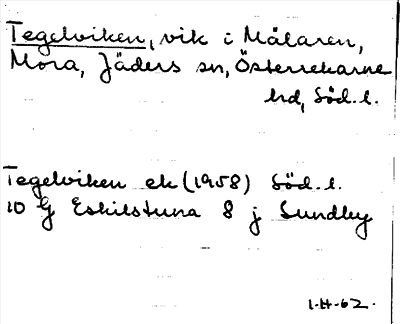 Tegelviken, vik i Mälaren,
Mora, Jäders sn, Österrekarne
hd, Söd. l.
Tegelviken ek (1958) Söd. l.
10 G Eskilstuna 8 j Sundby
1-H-62.